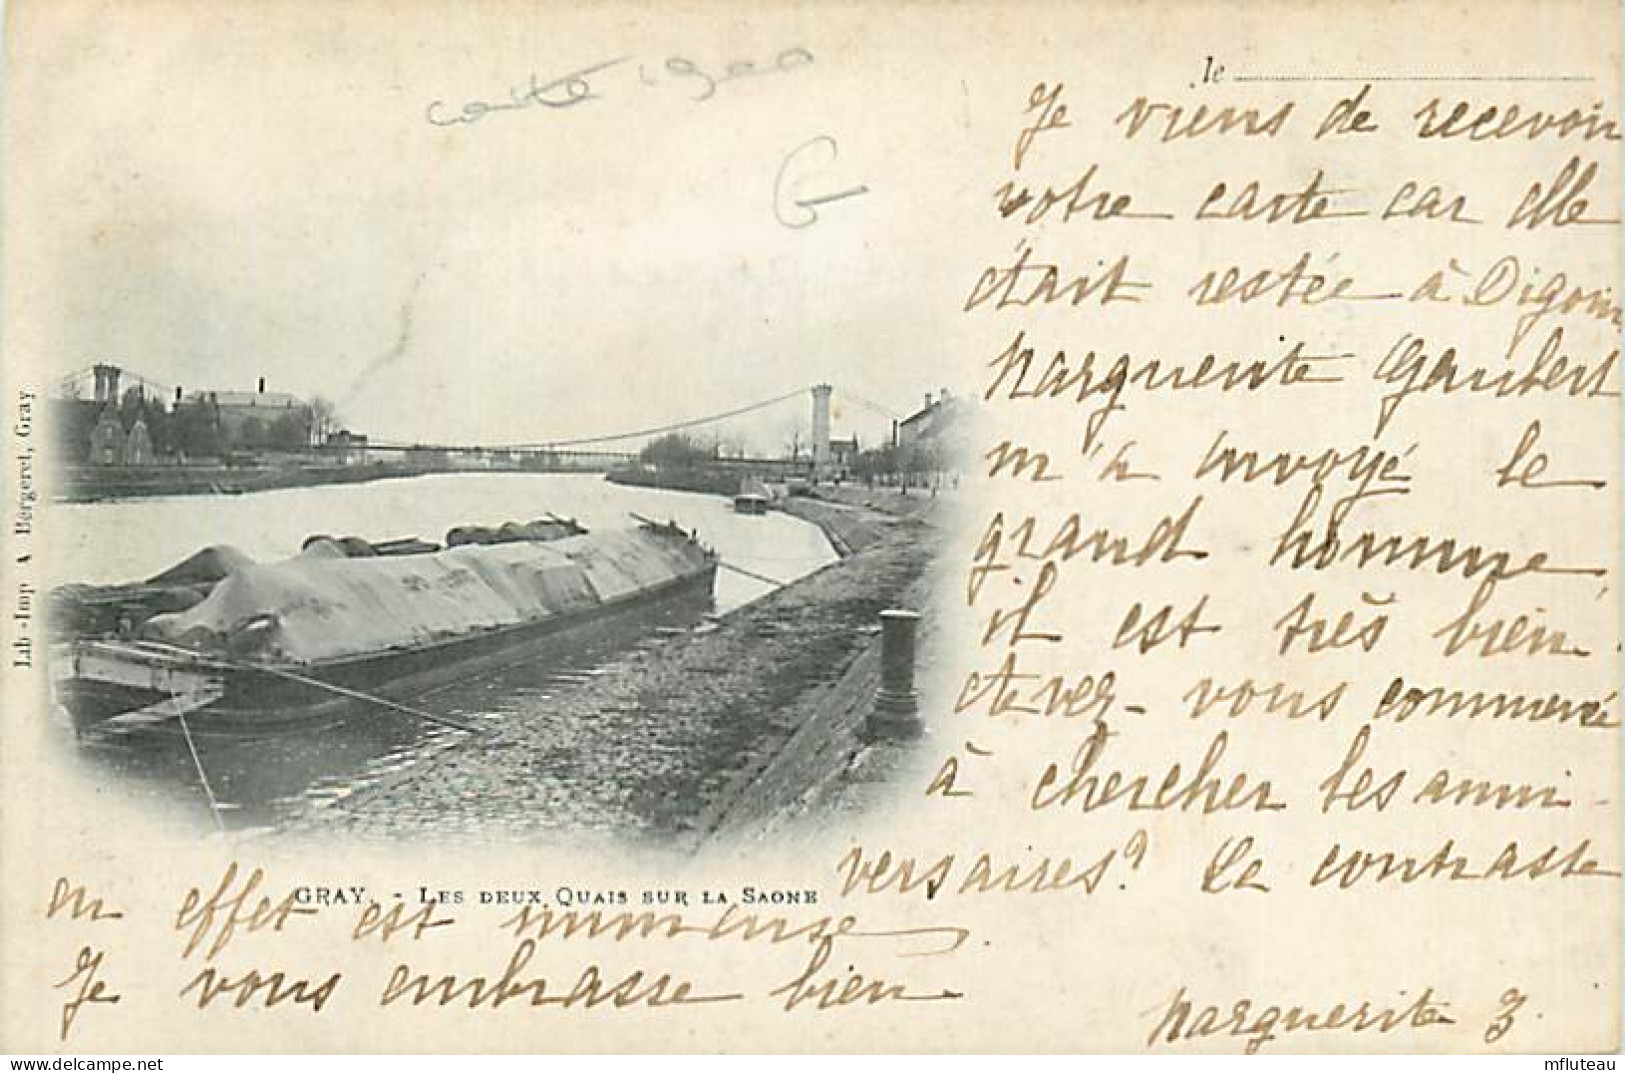 carte 1900
G
le
Je viens de recevoir
votre carte car elle
était restée à Digoin
Marguerite Gaubert
m'a envoyé le
grand homme,
il est très bien.
Avez-vous commencé
à chercher les anni-
versaires? Le contraste
en effet est immense
Je vous embrasse bien
Marguerite 3
GRAY. - LES DEUX QUAIS SUR LA SAONE
Lib.-Imp. A Bergeret, Gray
mfluteau